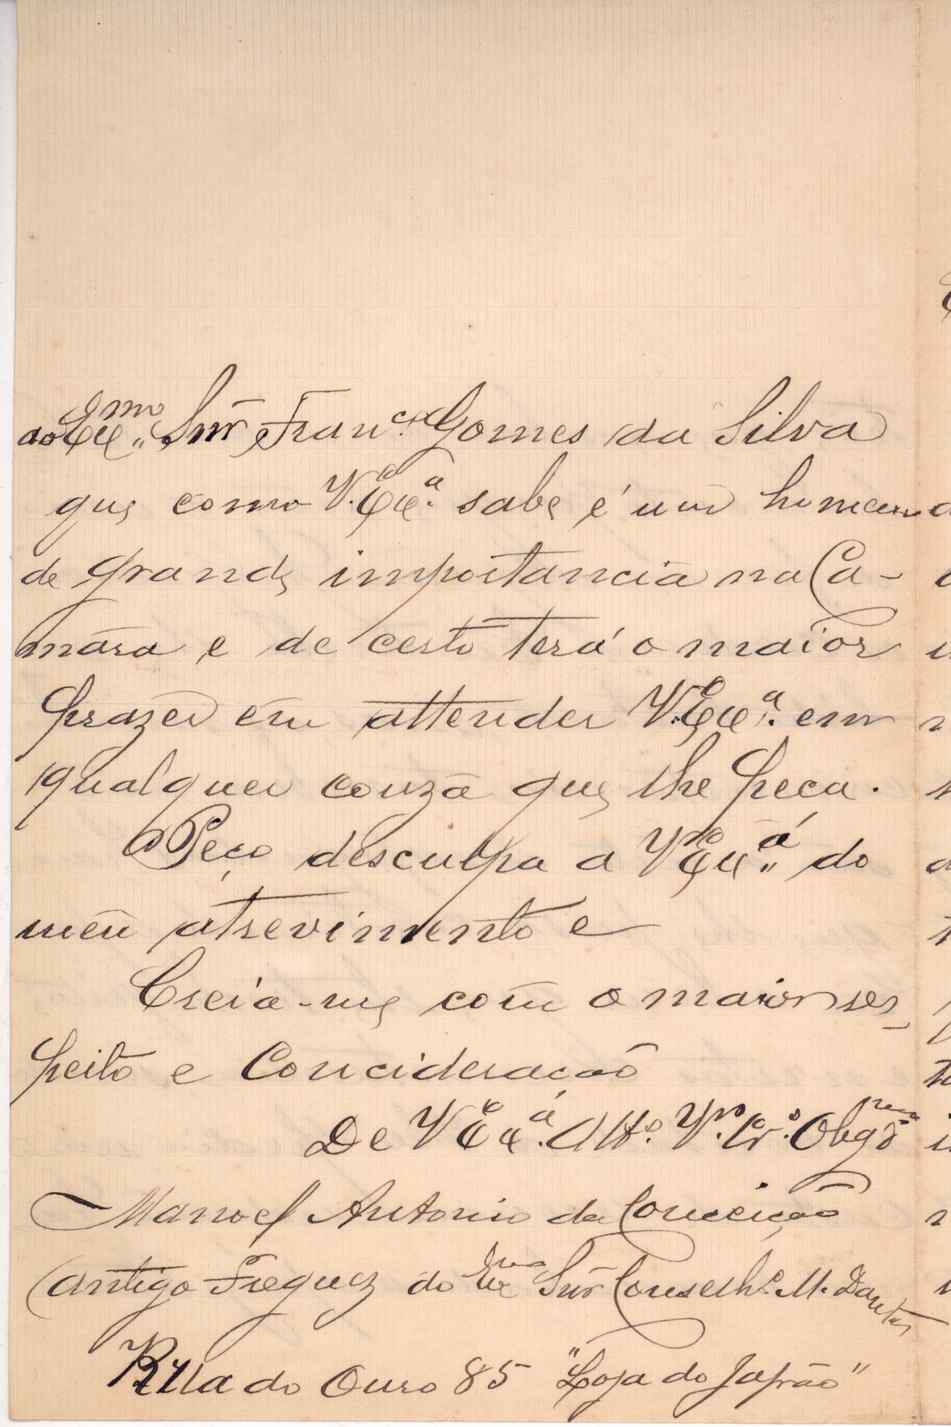 ao Exmo Snr Franco Gomes da Silva
que como V. Exa. sabe é um homem
de grande importancia na Ca-
mara e de certo terá o maior
prazer em attender V. Exa. em
qualquer couza que lhe peça.
Peço desculpa a V Exa do
meu atrevimento e
Creia-me com o maior res-
peito e Concideração
De V Exa. Atto. Vor. Cr.o Obgdo
Manoel Antonio da Conceição
(Antigo Freguez do Exmo Snr Conselho. M. Dantas
R Rua do Ouro 85 "Loja do Japão"